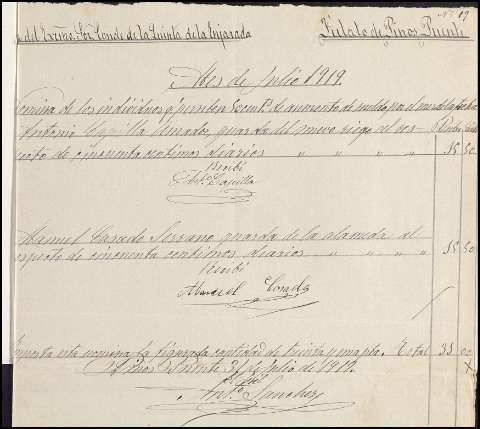 Nº 19
del Exmo. Sor. Conde de la Quinta de la Enjarada
Relato de Pinos Puente
Mes de Julio 1919.
Nomina de los individuos q. perciben aumento de sueldo por el mes de la fecha
Antonio Capilla guarda del nuevo riego al res-
pecto de cincuenta centimos diarios " " " " 15 50
Recibí
Antº Capilla
Manuel Casado Serrano guarda de la alameda al
respecto de cincuenta centimos diarios " " " " 15 50
Recibí
Manuel Casado
Importa esta nomina la figurada cantidad de treinta y una pts. Total 31 00
Pinos Puente 31 de Julio de 1919.
Antº Sanchez